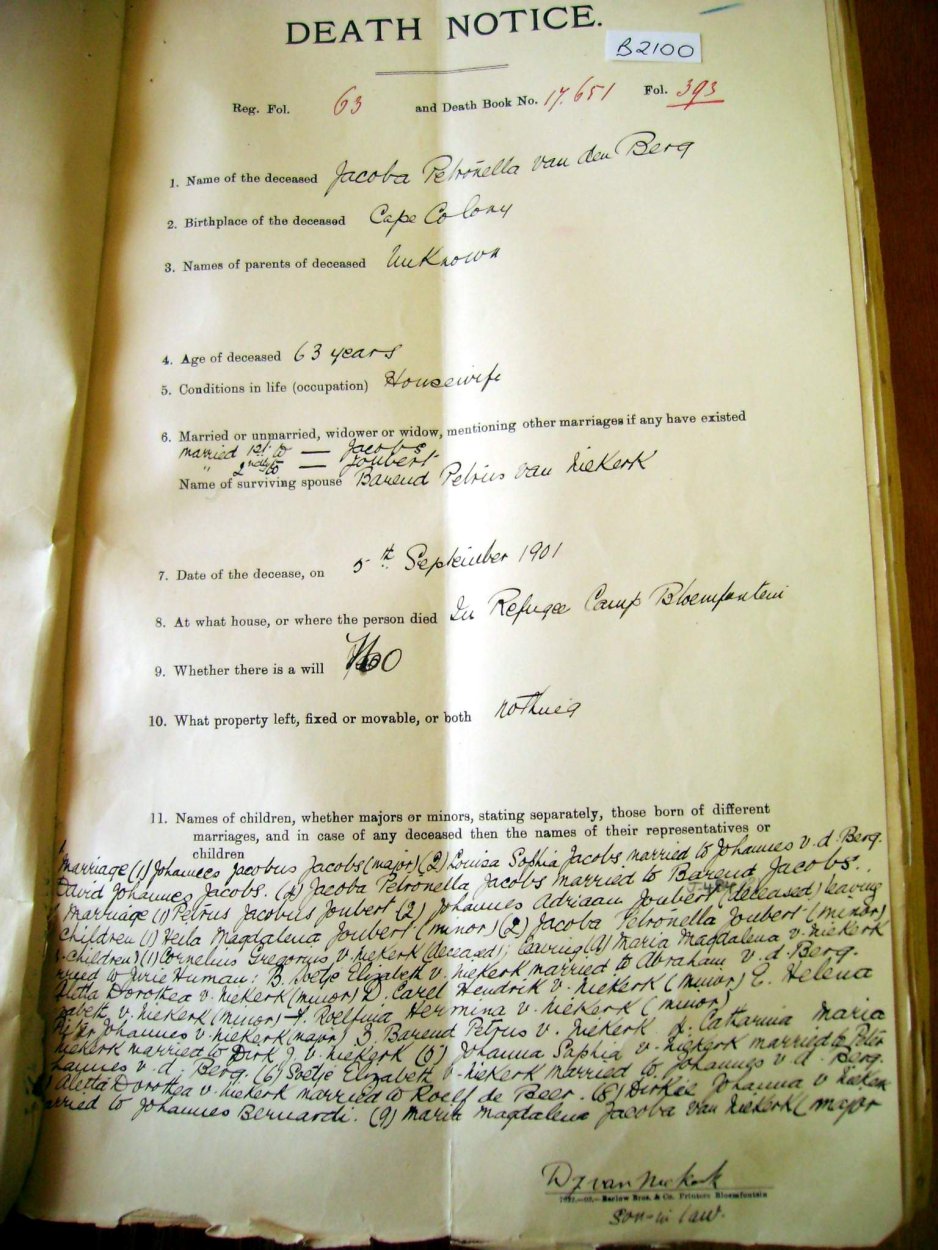 DEATH NOTICE.
B2100
Reg. Fol. 63 and Death Book No. 17.651 Fol. 393
1. Name of the deceased Jacoba Petronella van den Berg
2. Birthplace of the deceased Cape Colony
3. Names of parents of deceased Unknown
4. Age of deceased 63 years
5. Conditions in life (occupation) Housewife
6. Married or unmarried, widower or widow, mentioning other marriages if any have existed
married 1st to — Jacobs
" 2nd to — Joubert
Name of surviving spouse Barend Petrus van Niekerk
7. Date of the decease, on 5th September 1901
8. At what house, or where the person died In Refugee Camp Bloemfontein
9. Whether there is a will No
10. What property left, fixed or movable, or both nothing
11. Names of children, whether majors or minors, stating separately, those born of different
marriages, and in case of any deceased then the names of their representatives or
children
marriage (1) Johannes Jacobus Jacobs (major) (2) Louisa Sophia Jacobs married to Johannes v. d. Berg.
David Johannes Jacobs. (4) Jacoba Petronella Jacobs married to Barend Jacobs.
marriage (1) Petrus Jacobus Joubert (2) Johannes Adriaan Joubert (deceased) leaving
children (1) Heila Magdalena Joubert (minor) (2) Jacoba Petronella Joubert (minor)
children) (1) Cornelius Gregorius v. niekerk (deceased); leaving (A) Maria Magdalena v. niekerk
married to Jurie Human; B. Soetje Elizabeth v. niekerk married to Abraham v. d. Berg.
Aletta Dorothea v. niekerk (minor) D. Carel Hendrik v. niekerk (minor) E. Helena
v. niekerk (minor) Roelfina Hermina v. niekerk (minor)
Johannes v. niekerk (major) 3. Barend Petrus v. niekerk 4. Catharina Maria
niekerk married to Dirk J. v. niekerk (5) Johanna Sophia v. niekerk married to Peter
v. d. Berg. (6) Soetje Elizabeth v. niekerk married to Johannes v. d. Berg.
Aletta Dorothea v. niekerk married to Roelf de Beer. (8) Dirkie Johanna v niekerk
married to Johannes Bernardi. (9) maria magdalena Jacoba van Niekerk (major
D J van Niekerk
Barlow Bros. & Co. Printers Bloemfontein
Son-in law.